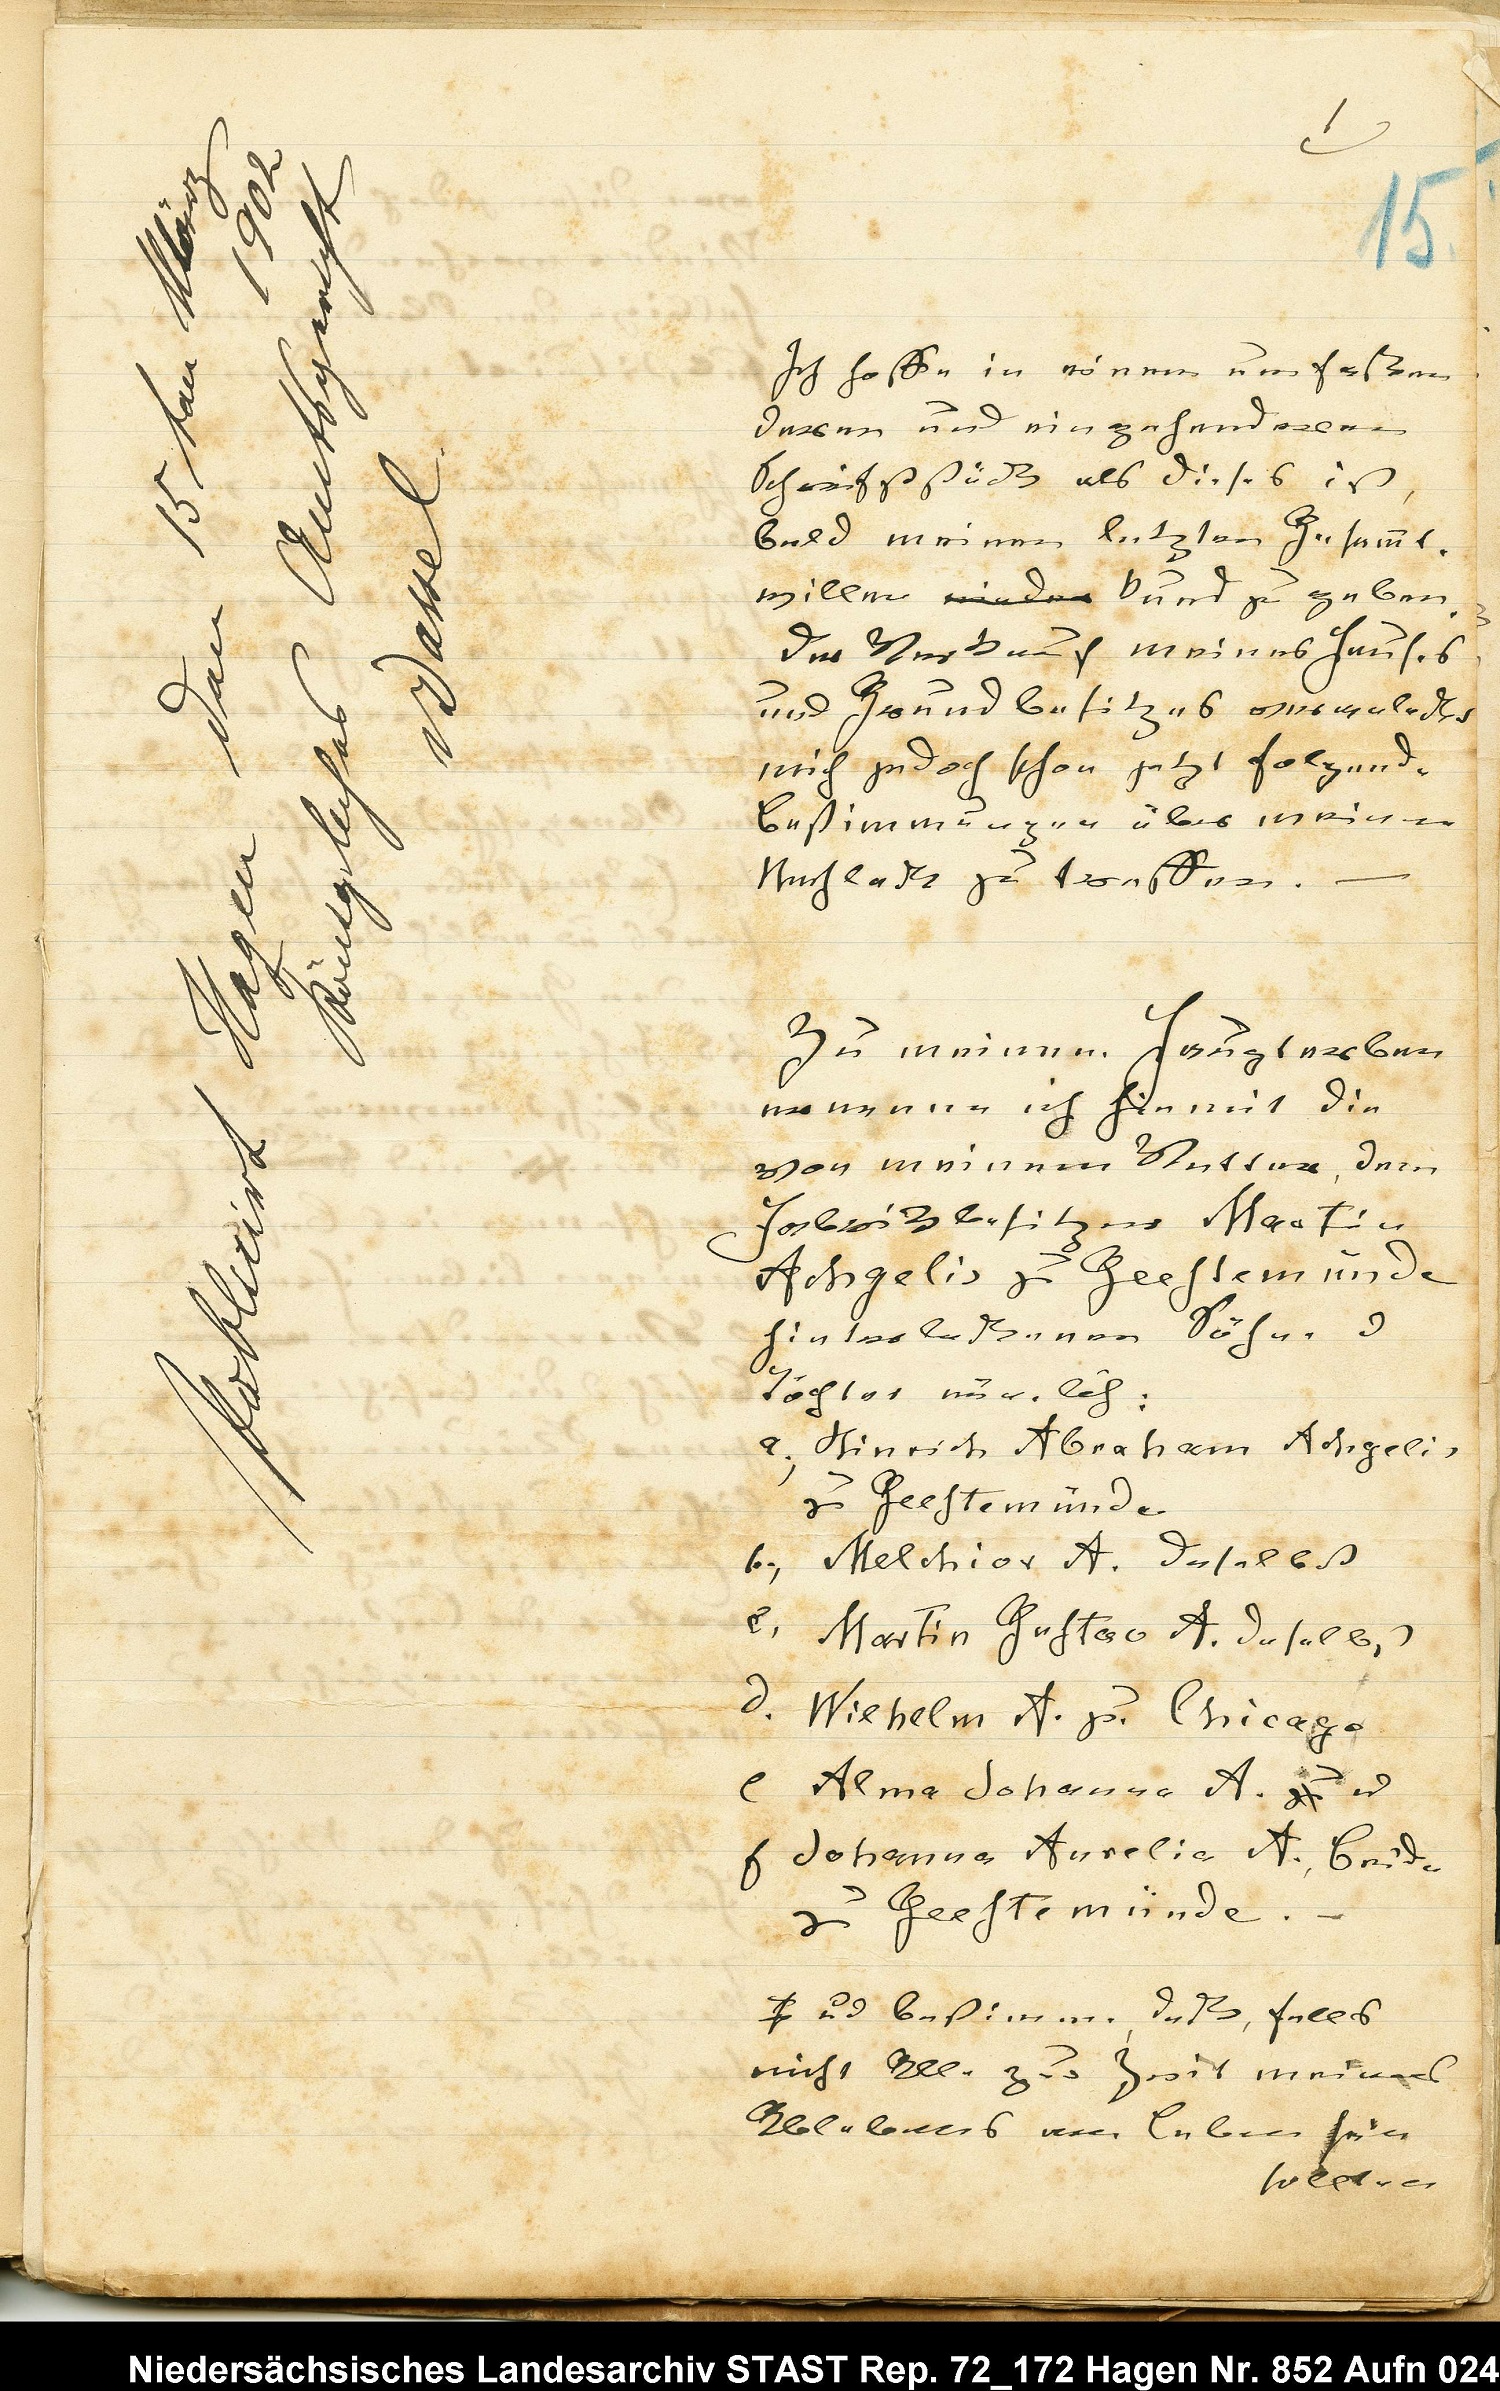 1
15.
Publicirt Hagen den 15ten März
1902
Königliches Amtsgericht
Wassel
Ich hoffe in einem umfaßen
deren und eingehenderen
Schriftstück als dieses ist,
bald meinen letzten Gesamt-
willen kund zu geben.
Der Verkauf meines Hauses
und Grundbesitzes veranlaßt
mich jedoch schon jetzt folgende
Bestimmungen über meinen
Nachlaß zu treffen. —
Zu meinen Haupterben
ernenne ich hiermit die
von meinem Vetter, dem
Fabrikbesitzer Martin
Achgelis zu Geestemünde
hinterlaßenen Söhne &
Töchter nämlich:
a., Hinrich Abraham Achgelis
zu Geestemünde
b., Melchior A. daselbst
c, Martin Gustav A. daselbst
d. Wilhelm A. z. Chicago
e Alma Johanna A. ud
f Johanna Aurelia A., beide
zu Geestemünde. –
ud bestimme, daß, falls
nicht Alle zur Zeit meines
Ablebens am Leben sein
sollten
Niedersächsisches Landesarchiv STAST Rep. 72_172 Hagen Nr. 852 Aufn 024